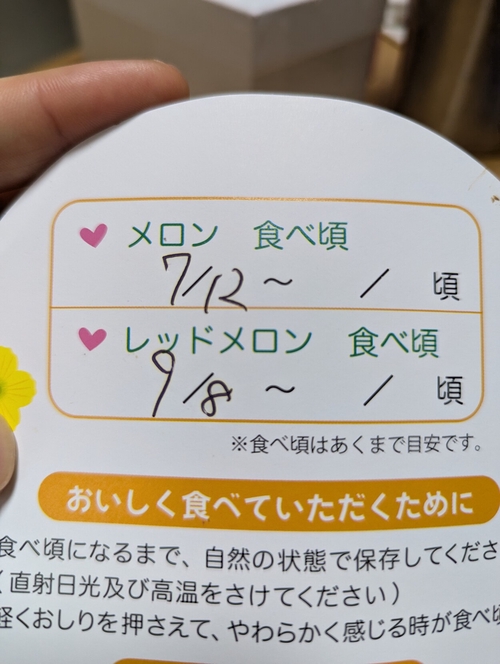 メロン 食べ頃
7/12 ~ / 頃
レッドメロン 食べ頃
9/8 ~ / 頃
※食べ頃はあくまで目安です。
おいしく食べていただくために
食べ頃になるまで、自然の状態で保存してくださ
(直射日光及び高温をさけてください)
軽くおしりを押さえて、やわらかく感じる時が食べ頃